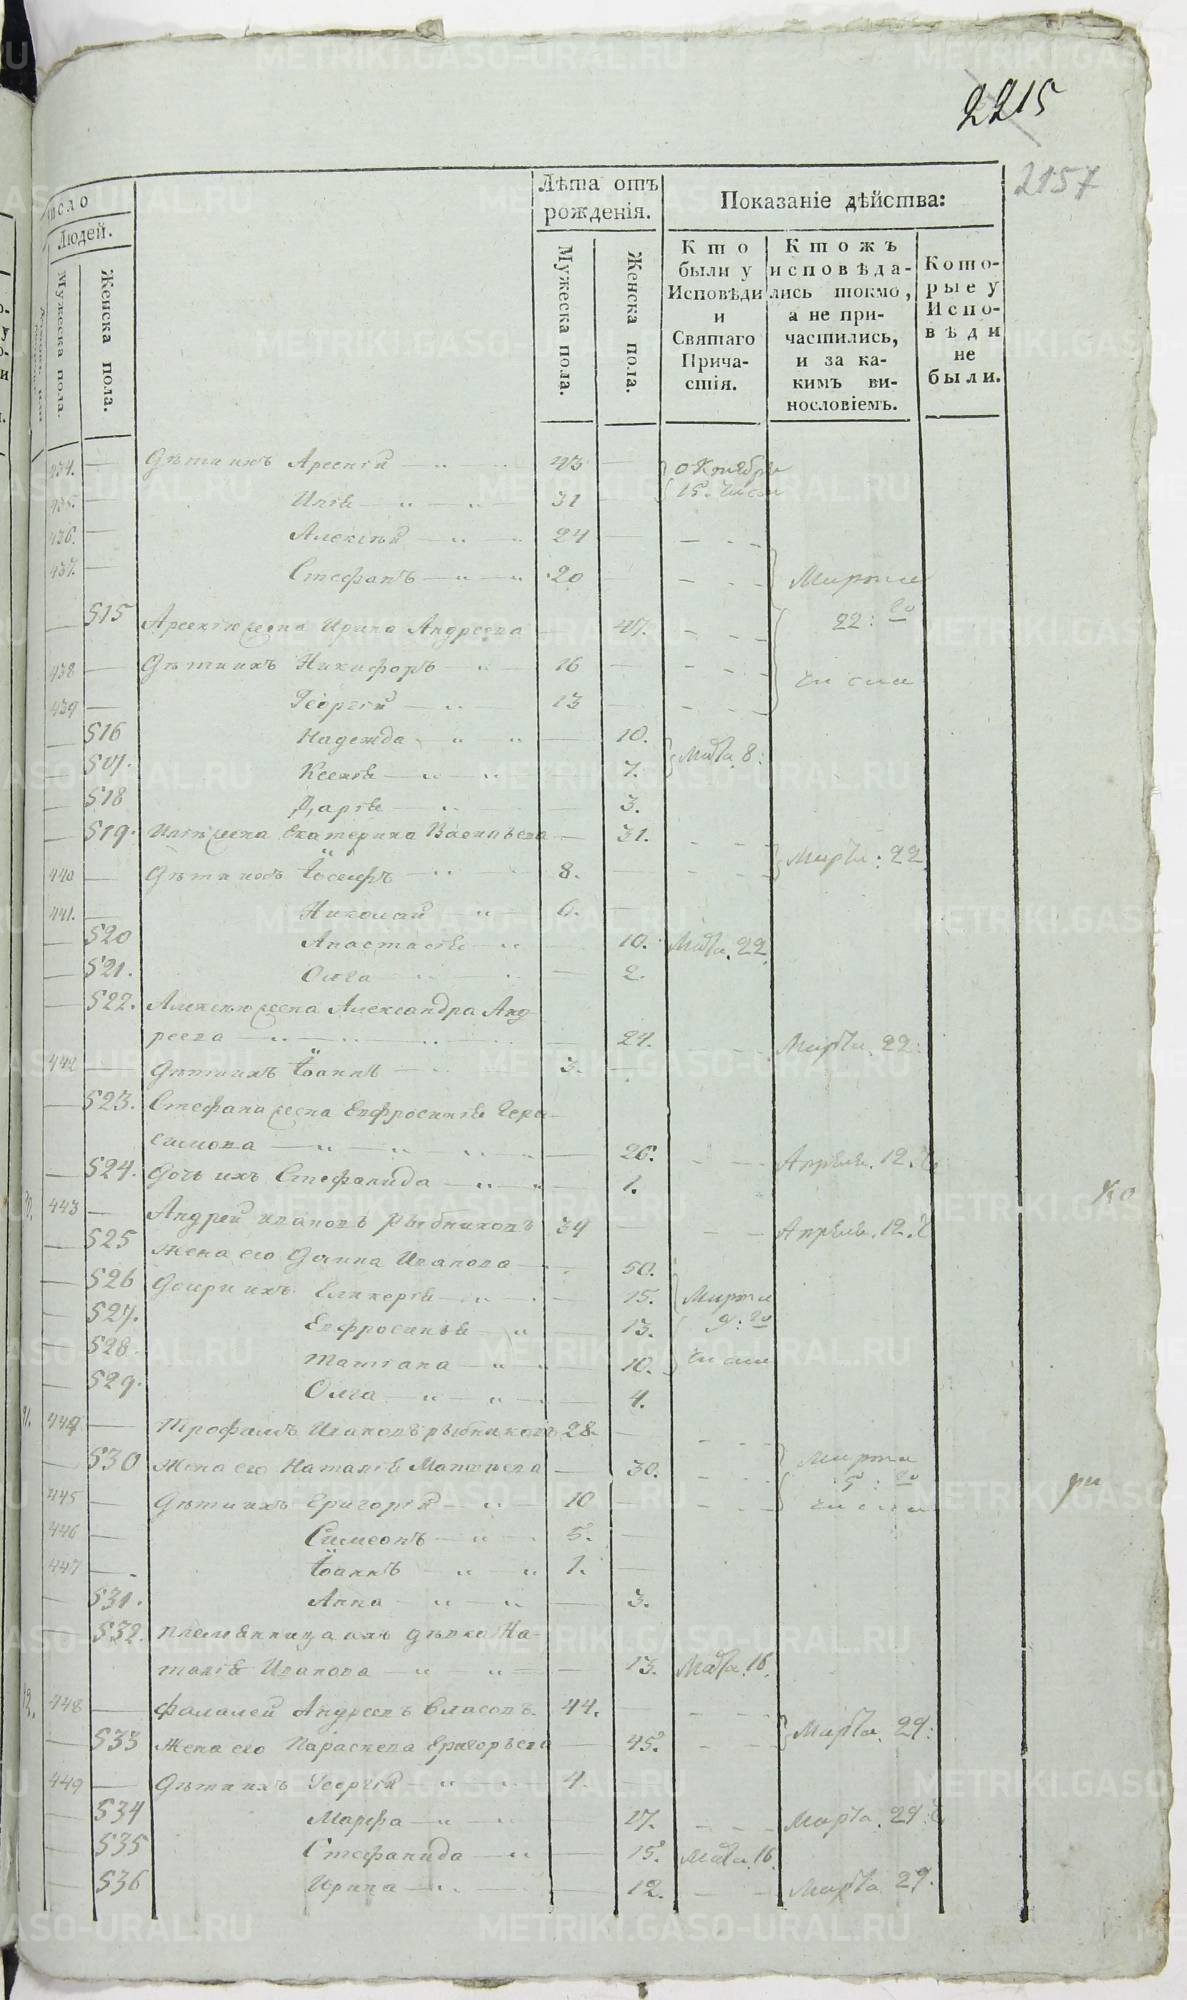 2215
2157
Число
Людей.
Мужеска пола.
Женска пола.
Лѣта отъ рожденія.
Мужеска пола.
Женска пола.
Показаніе дѣйства:
Кто были у Исповѣди и Святаго Причастія.
Ктожъ исповѣдались токмо, а не причастились, и за какимъ винословіемъ.
Которые у Исповѣди не были.
434. — Дѣти ихъ Арсеній — 43 — Октября
435. — Илія — 31 15. числа
436. — Алексѣй — 24 —
437. — Стефанъ — 20 — Марта
— 515 Арсенія жена Ирина Андреева — 47. 22: го
438 — Дѣти ихъ Никифоръ — 16 — числа
439 — Георгій — 13 —
— 516 Надежда — 10.
— 517. Ксенія — 7. Марта 8:
— 518 Дарія — 3.
— 519. Иліи жена Екатерина Васильева — 31.
Марта: 22
440 — Дѣти ихъ Іосифъ — 8. —
441. — Николай — 6. —
— 520 Анастасія — 10. Марта. 22.
— 521. Олга — 2.
— 522. Алексѣя жена Александра Анд
реева — 24. Марта. 22:
442 — Дѣти ихъ Іоаннъ — 3. —
— 523. Стефана жена Евфросинія Гера-
симова — 26. Апрѣля. 12. ч
— 524. Дочь ихъ Стефанида — 1.
443 — Андрей Ивановъ Рыбниковъ 34 — Апрѣля. 12. ч
Ко
— 525 Жена его Ивановa — 50.
— 526 Дщери ихъ Гликерія — 15. Марта
— 527. Евфросинія — 13. 9: го
— 528. Татіана — 10. числа
— 529. Олга — 4.
444 — Трофимъ Ивановъ Рыбниковъ 28. —
— 530 Жена его Наталія Матвѣева — 30. Марта
5: го
445 — Дѣти ихъ Григорій — 10 — числа
446 — Симеонъ — 5. —
447 — Іоаннъ — 1. —
— 531. Анна — 3.
— 532. Племянница ихъ дѣвка На-
талія Иванова — 13. Марта. 16.
448 — Фалалей Андреевъ Власовъ. 44. —
Марта. 29:
— 533 Жена его Параскева Григорьева — 45.
449 — Дѣти ихъ Георгій — 4. —
— 534 Марфа — 17. Марта. 29: ч
— 535 Стефанида — 15. Марта. 16.
— 536 Ирина — 12. Марта 29.
METRIKI.GASO-URAL.RU